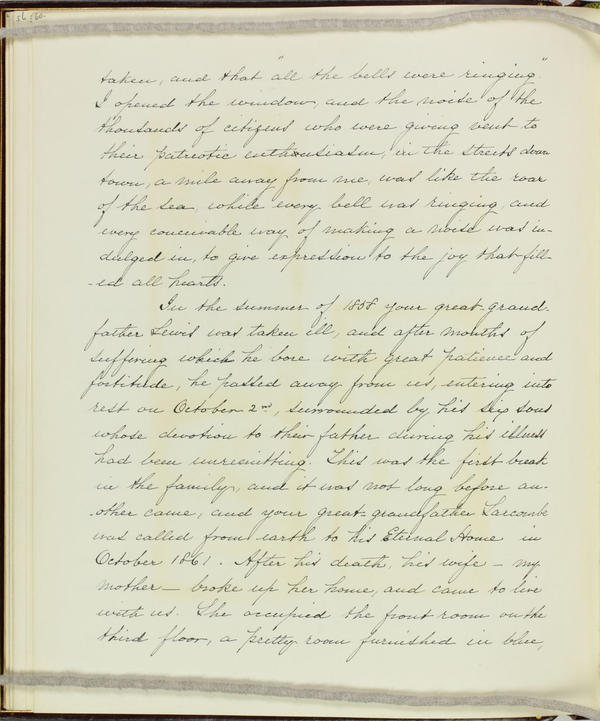 56
taken, and that "all the bells were ringing"
I opened the window, and the noise of the
thousands of citizens who were giving vent to
their patriotic enthousiasm, in the streets down
town, a mile away from me, was like the roar
of the sea, while every bell was ringing, and
every conceivable way of making a noise was in-
dulged in, to give expression to the joy that fill-
-ed all hearts.
In the summer of 1858 your great-grand-
father Lewis was taken ill, and after months of
suffering which he bore with great patience and
fortitude, he passed away from us, entering into
rest on October 2nd, surrounded by his six sons
whose devotion to their father during his illness
had been unremitting. This was the first break
in the family, and it was not long before an-
-other came, and your great-grandfather Larcombe
was called from earth to his Eternal Home in
October 1861. After his death, his wife — my
mother — broke up her home, and came to live
with us. She occupied the front room on the
third floor, a pretty room furnished in blue,